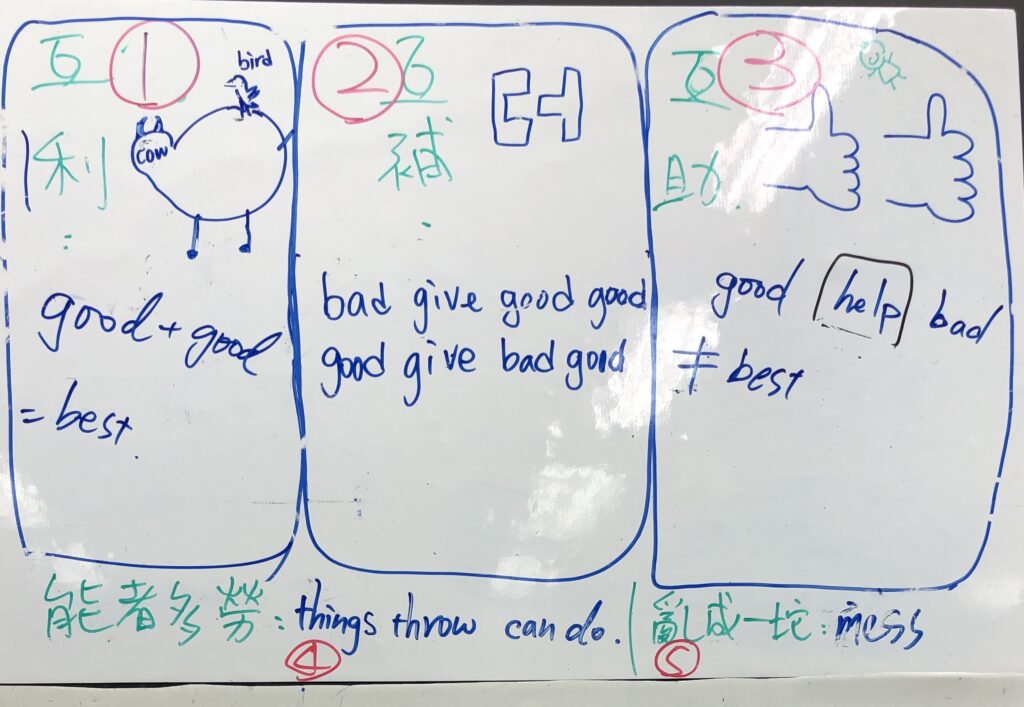 互 ①
bird
cow
利
:
good + good
= best.
② 互
補
:
bad give good good
good give bad good
互 ③
助
good help bad
≠ best
能者多勞: things throw can do.
④
亂成一坨: mess
⑤